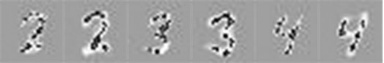 2 2 3 3 4 4